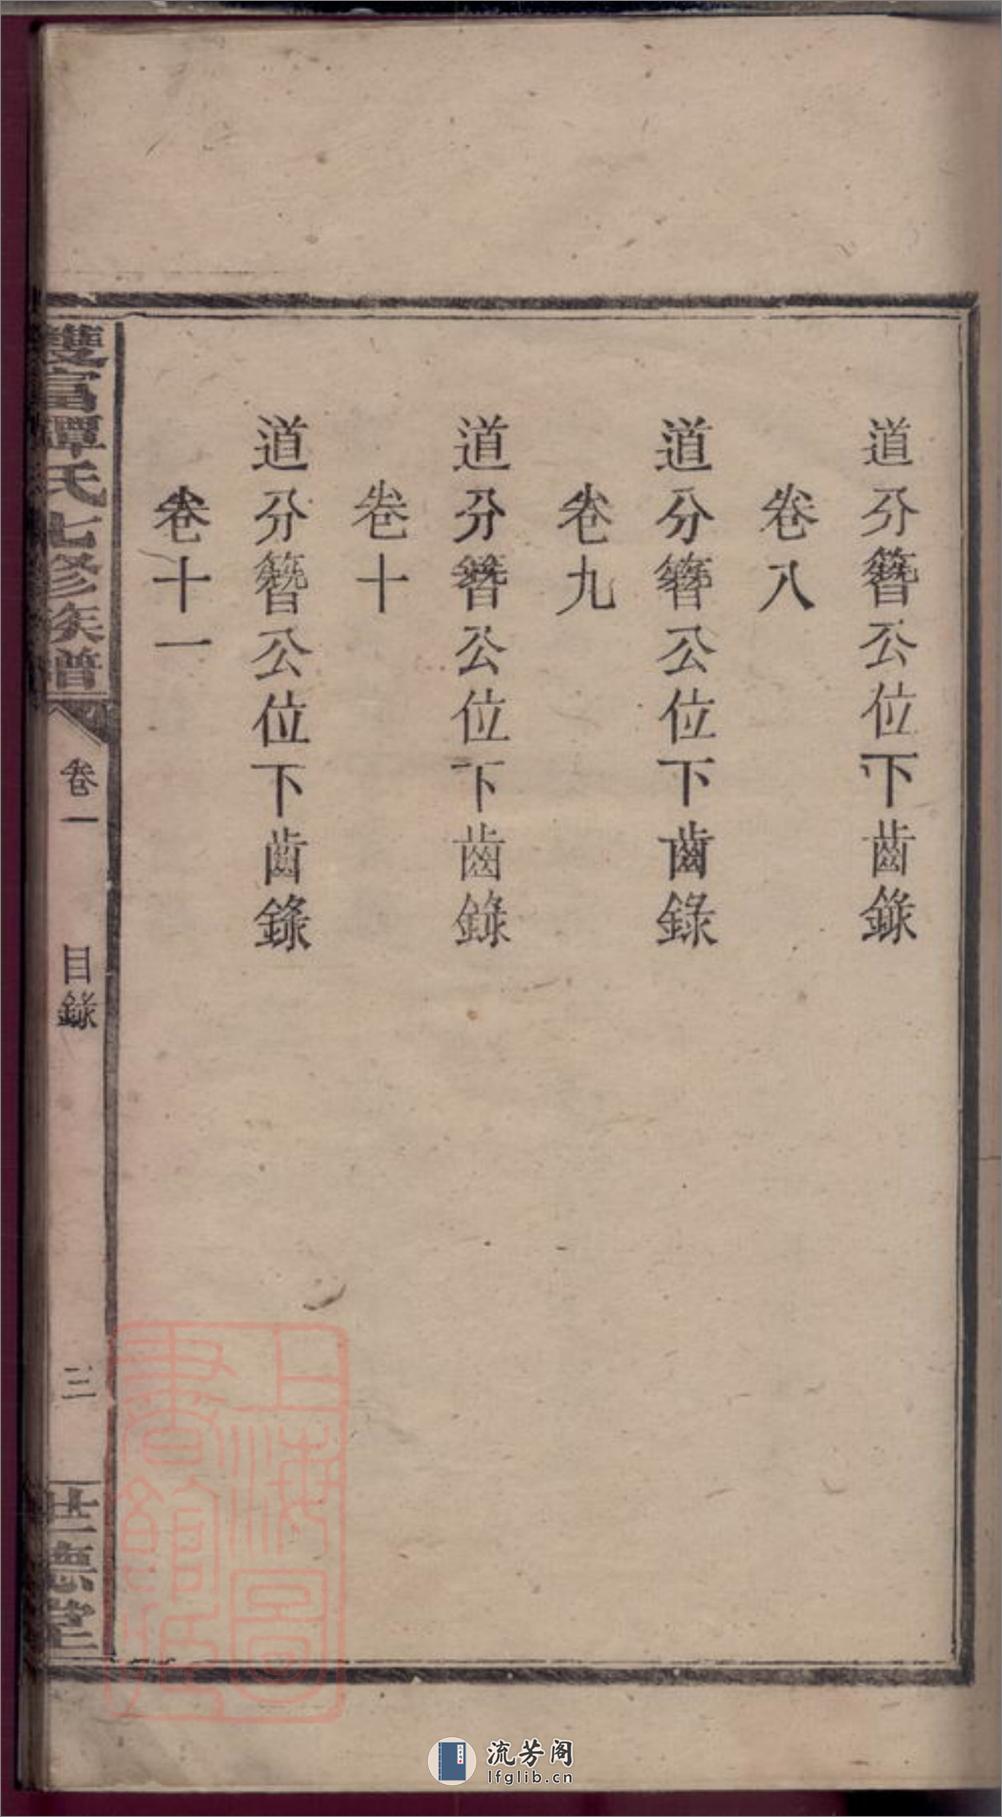 道分簪公位下齒錄
卷八
道分簪公位下齒錄
卷九
道分簪公位下齒錄
卷十
道分簪公位下齒錄
卷十一
雙富譚氏七修族譜
卷一
目錄
三
世德堂
上海圖
書館藏
流芳阁
lfglib.cn